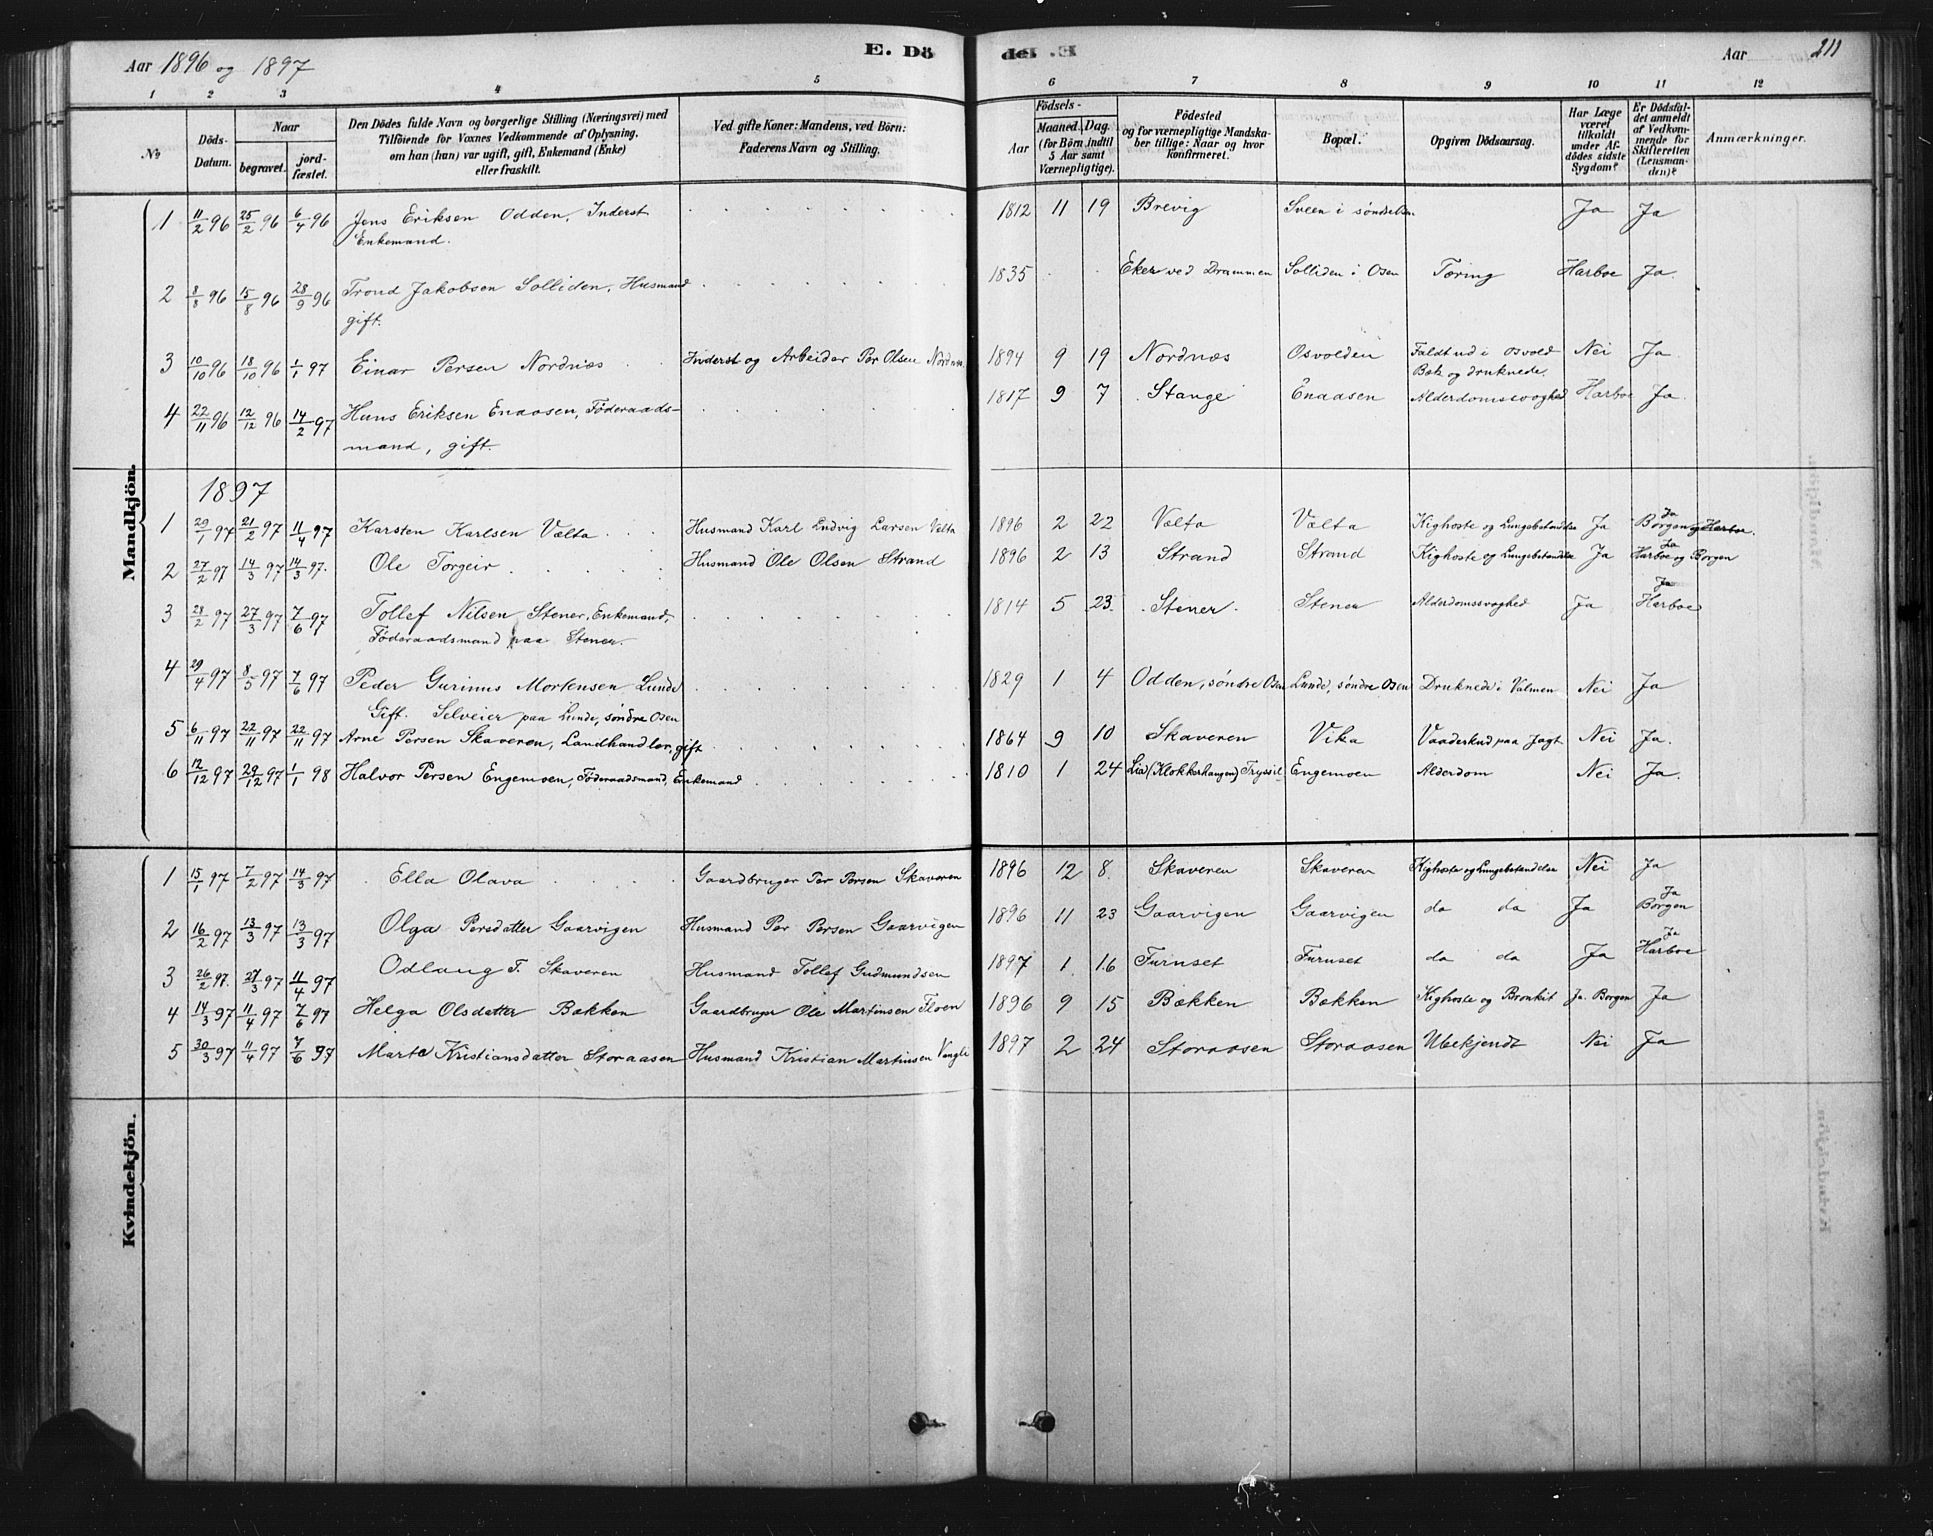 Aar 1896 og 1897
E. Dö
de. E
Aar
211
1 2 3 4 5
6 7 8 9 10 11 12
No
Döds-Datum.
Naar
begravet.
jordfæstet.
Den Dödes fulde Navn og borgerlige Stilling (Næringsvei) med
Tilföiende for Voxnes Vedkommende af Oplysning,
om han (hun) var ugift, gift, Enkemand (Enke)
eller fraskilt.
Ved gifte Koner: Mandens, ved Börn:
Faderens Navn og Stilling.
Födsels-
Aar
Maaned. Dag.
(for Börn indtil
5 Aar samt
Værnepligtige).
Födested
og for værnepligtige Mandska-
ber tillige: Naar og hvor
konfirmeret.
Bopæl.
Opgiven Dödsaarsag.
Har Læge
været
tilkaldt
under Af-
dödes sidste
Sygdom?
Er Dödsfal-
det anmeldt
af Vedkom-
mende for
Skifteretten
(Lensman-
den)?
Anmærkninger.
Mandkjön.
1 11/2 96 25/2 96 6/4 96 Jens Eriksen Odden, Inderst 1812 11 19 Brevig Sveen i søndre Ja Ja
Enkemand.
2 8/8 96 15/8 96 28/9 96 Trond Jakobsen Solliden, Husmand 1835 Eker ved Drammen Solliden i Osen Tæring Harboe Ja.
gift.
3 10/10 96 18/10 96 1/1 97 Einar Persen Nordnæs Inderst og Arbeider Per Olsen Nordnæs 1894 9 19 Nordnæs Osvolden Faldt ud i Osvold Nei Ja
Bæk og druknede.
4 22/11 96 12/12 96 14/2 97 Hans Eriksen Enaasen, Føderaads- 1817 9 7 Stange Enaasen Alderdomssvaghed Harboe Ja.
mand, gift.
1897
1 29/1 97 21/2 97 11/4 97 Karsten Karlsen Vælta Husmand Karl Ludvig Larsen Vælta 1896 2 22 Vælta Vælta Kighoste og Lungebetændelse Ja Ja Borgen og Harboe.
2 27/2 97 14/3 97 14/3 97. Ole Torgeir Husmand Ole Olsen Strand 1896 2 13 Strand Strand Kighoste og Lungebetændelse Ja Ja Harboe og Borgen
3 28/2 97 27/3 97 7/6 97 Tollef Nilsen Stener, Enkemand, 1814 5 23. Stener. Stener Alderdomssvaghed Ja Ja Harboe
Føderaadsmand paa Stener.
4 29/4 97 8/5 97 7/6 97 Peder Gurinus Mortensen Lunde 1829 1 4 Odden, søndre Osen Lunde, søndre Osen Druknede i Valmen Nei Ja
Gift. Selveier paa Lunde, søndre Osen
5 6/11 97 22/11 97 22/11 97 Arne Persen Skaveren, Landhandler, gift 1864 9 10 Skaveren Vika Vaadeskud paa Jagt Nei Ja.
6 12/12 97 29/12 97 1/1 98 Halvor Persen Engemoen, Føderaadsmand, Enkemand 1810 1 24 Lia (Klokkerhaugen) Trysil Engemoen Alderdom Nei Ja.
Kvindekjön.
1 15/1 97 7/2 97 14/3 97 Ella Olava Gaardbruger Per Persen Skaveren 1896 12 8. Skaveren Skaveren Kighoste og Lungebetændelse Nei Ja
2 16/2 97 13/3 97 13/3 97 Olga Persdatter Gaarvigen Husmand Per Persen Gaarvigen 1896 11 23 Gaarvigen Gaarvigen do do Ja Ja Borgen
3 26/2 97. 27/3 97 11/4 97 Odlaug T. Skaveren Husmand Tollef Gudmundsen 1897 1. 16 Furuset Furuset do do Ja Ja Harboe
4 14/3 97 11/4 97 7/6 97 Helga Olsdatter Bækken Gaardbruger Ole Martinsen Floen 1896 9 15 Bækken Bækken Kighoste og Bronkit Ja. Borgen Ja
5 30/3 97 11/4 97 7/6 97 Marte Kristiansdatter Storaasen Husmand Kristian Martinsen 1897 2 24 Storaasen Storaasen Ubekjendt Nei Ja